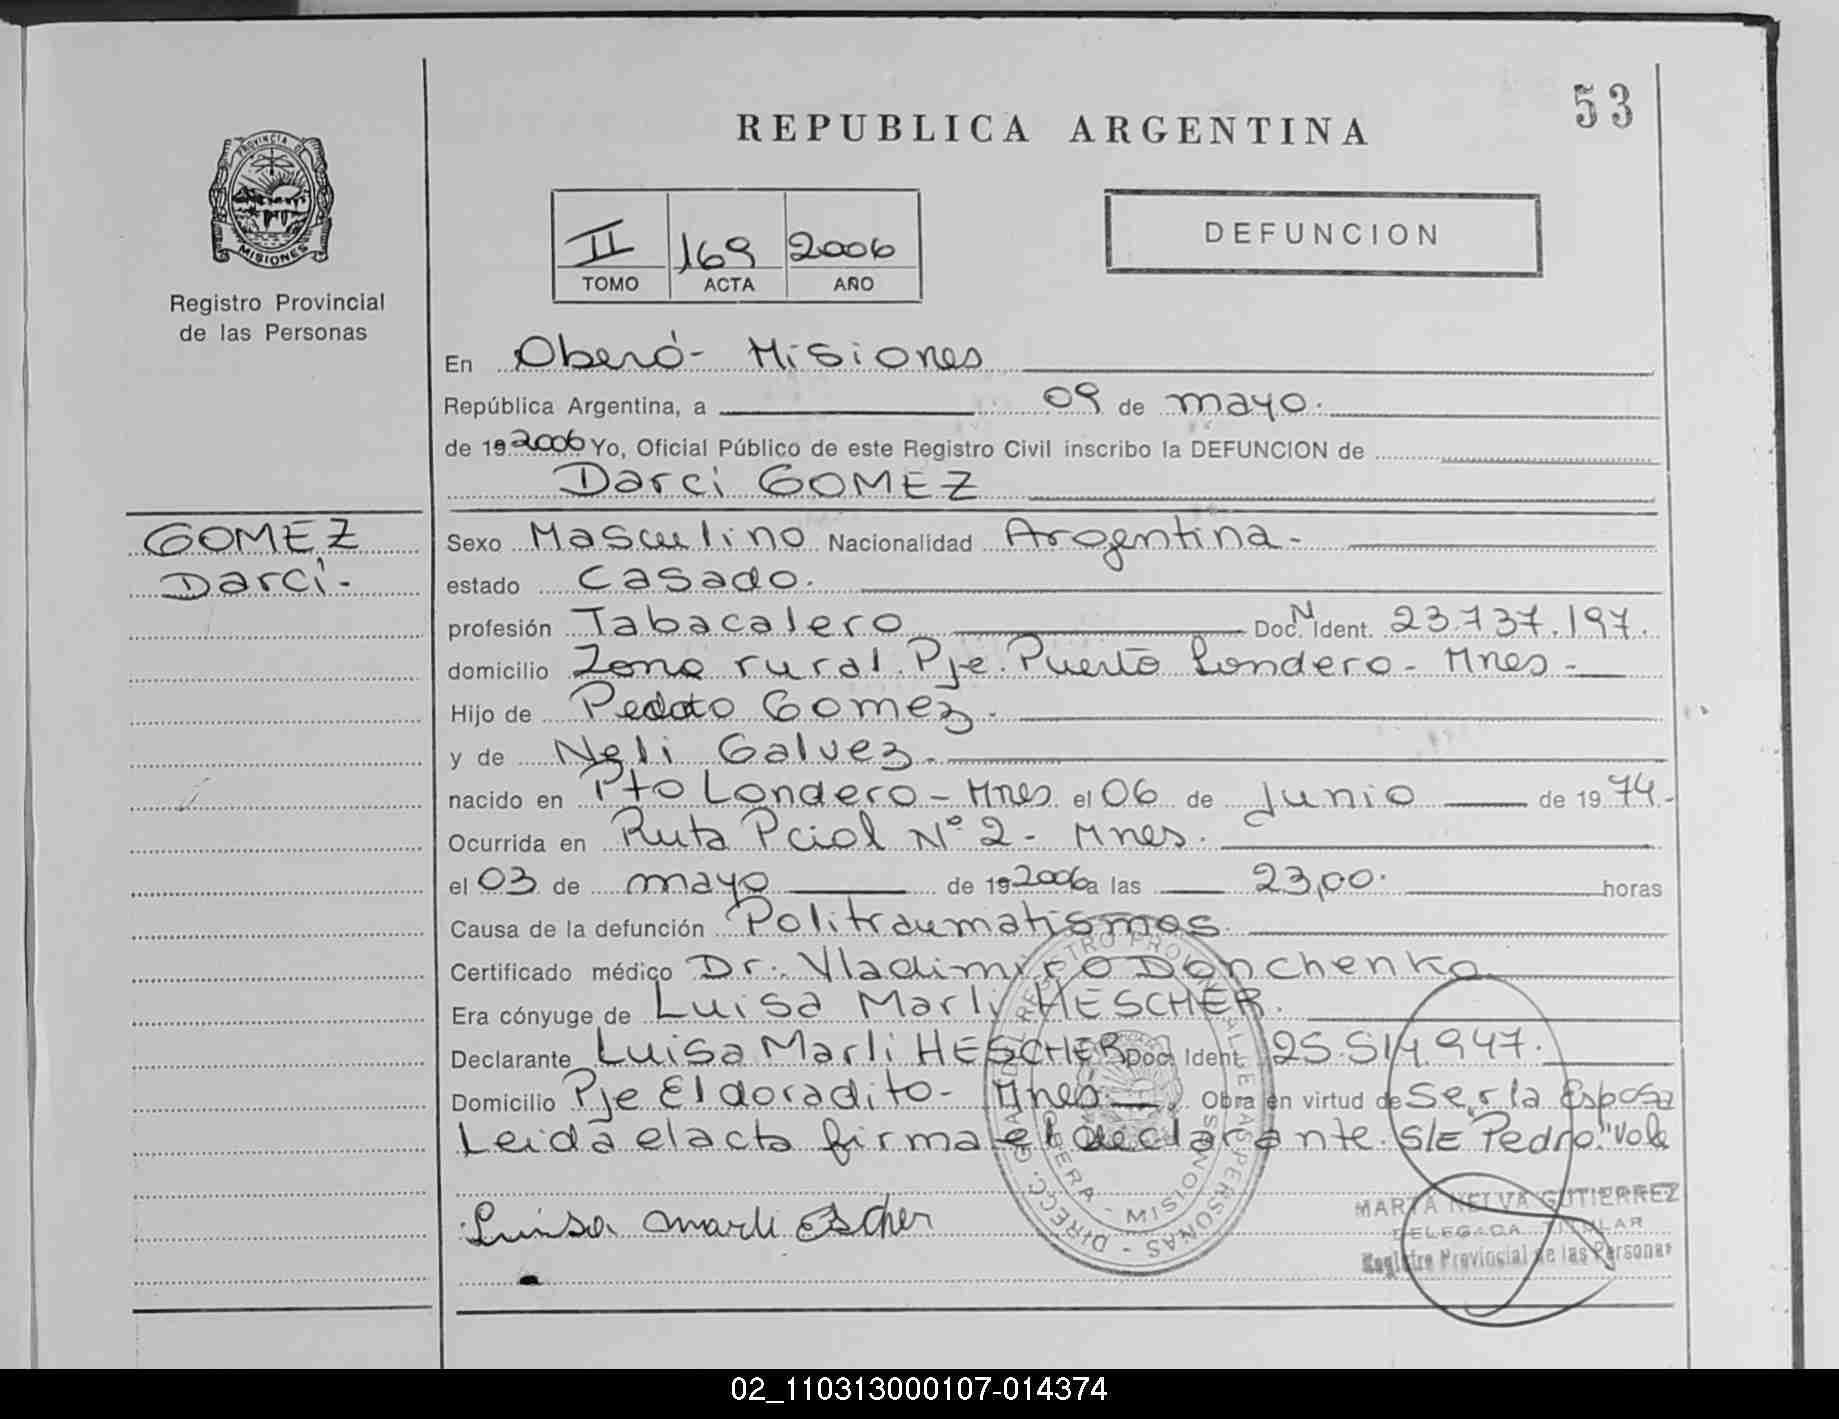 53
REPUBLICA ARGENTINA
PROVINCIA DE MISIONES
Registro Provincial
de las Personas
II 169 2006
TOMO ACTA AÑO
DEFUNCION
En Oberá - Misiones
República Argentina, a 09 de mayo.
de 19 2006 Yo, Oficial Público de este Registro Civil inscribo la DEFUNCION de
Darci GOMEZ
GOMEZ
Darci -
Sexo Masculino Nacionalidad Argentina -
estado Casado.
profesión Tabacalero Doc. N Ident. 23.737.197.
domicilio Zona rural. Pje. Puerto Londero - Mnes -
Hijo de Gomez -
y de Neli Galvez -
nacido en Pto Londero - Mnes el 06 de Junio de 19 74 -
Ocurrida en Ruta Pcial Nº 2 - Mnes.
el 03 de mayo de 19 2006 a las 23,00. horas
Causa de la defunción Politraumatismos
Certificado médico Dr. Vladimiro Donchenko
Era cónyuge de Luisa Marli HESCHER.
Declarante Luisa Marli HESCHER Doc. Ident. 25.514.947.
Domicilio Pje Eldoradito - Mnes. Obra en virtud de Ser la Esposa
Leida el acta firma el declarante. S/E Pedro. "Vale
Luisa Marli Escher
MARTA NELVA GUTIERREZ
DELEGADA TITULAR
Registro Provincial de las Personas
DIRECC. GRAL. DEL REGISTRO PROVINCIAL DE LAS PERSONAS - MISIONES
02_110313000107-014374